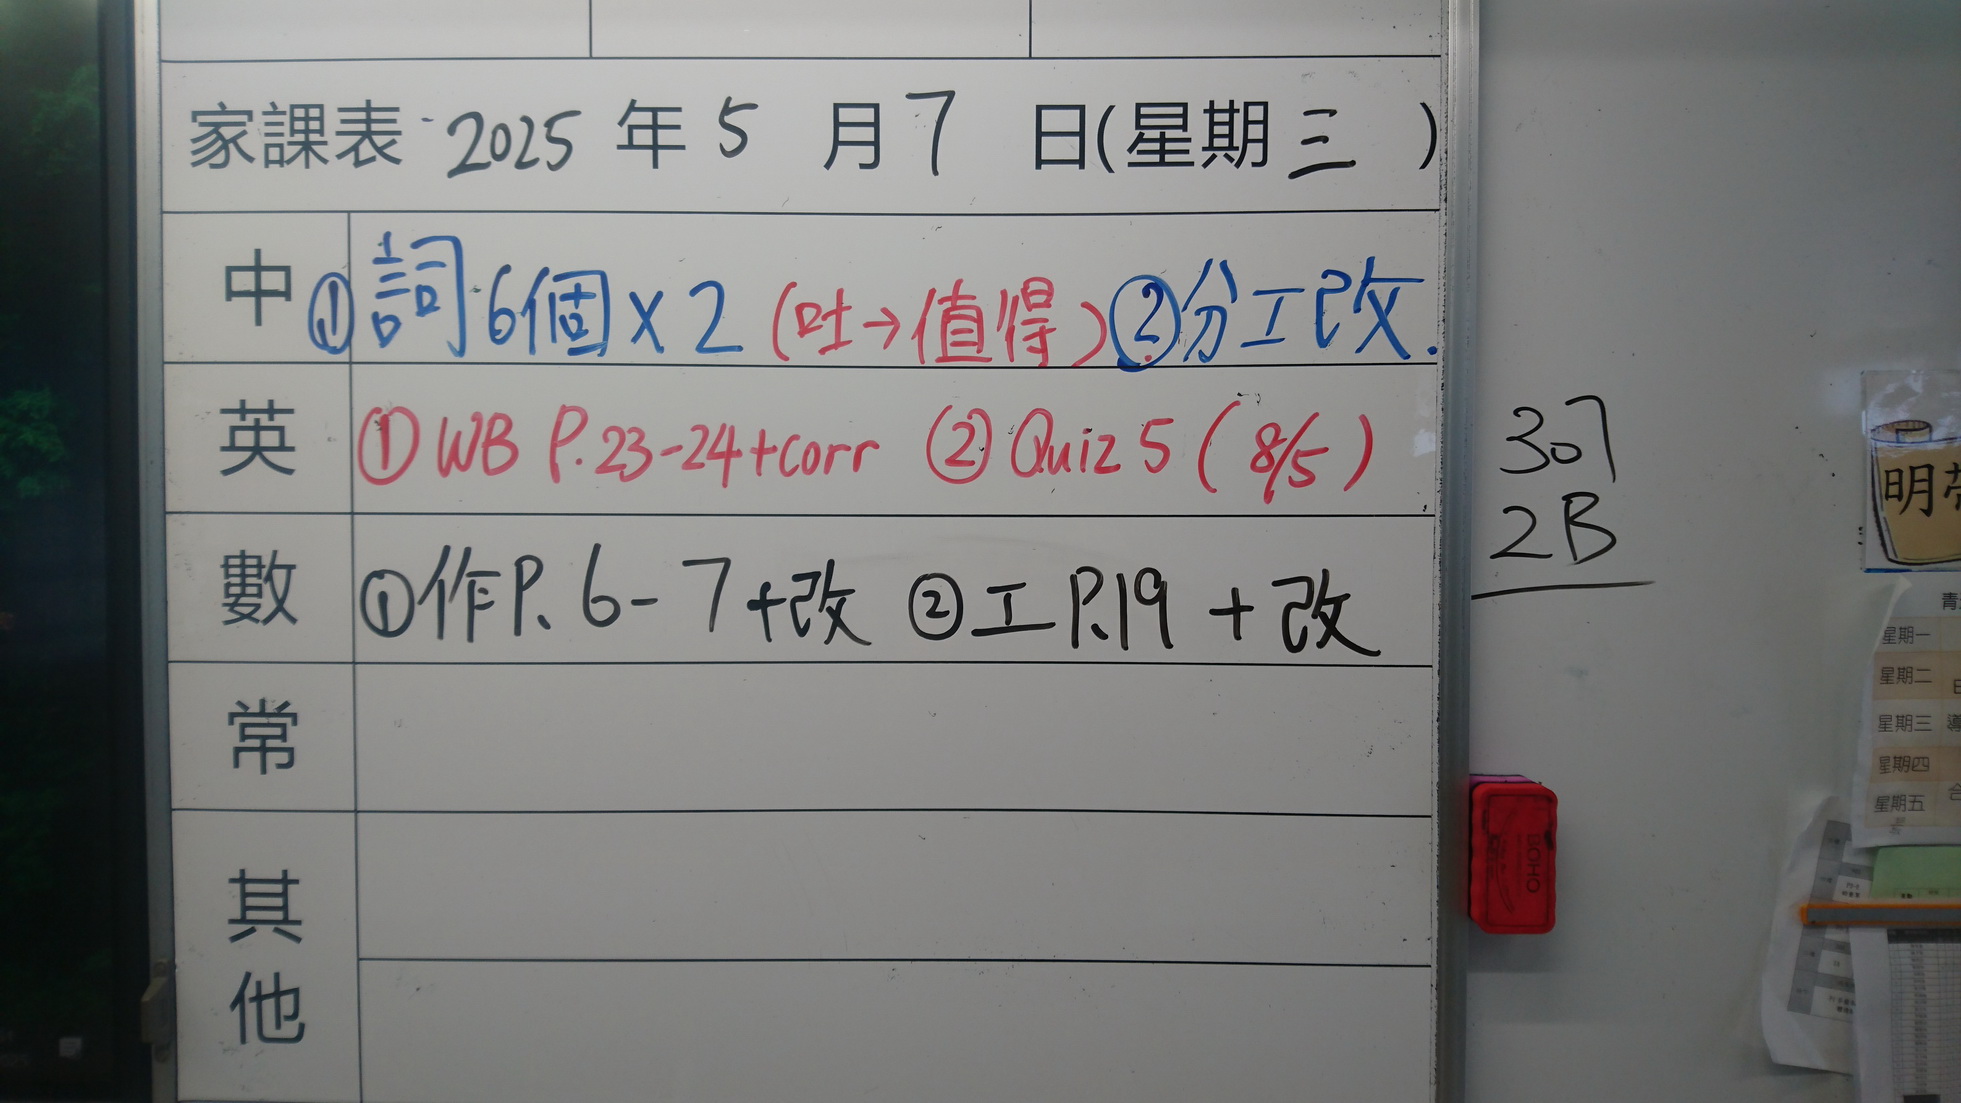 家課表 2025 年 5 月 7 日(星期 三 )
中 ① 詞6個×2 (吐→值得) ②分工改.
英 ① WB P.23-24+corr ② Quiz 5 ( 8/5 )
數 ①作P. 6-7+改 ②工 P.19 + 改
常
其他
307
2B
明
星期一
星期二
星期三
星期四
星期五
SOHO